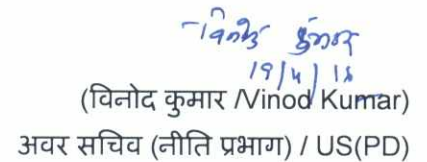 विनोद कुमार
19/4/18
(विनोद कुमार /Vinod Kumar)
अवर सचिव (नीति प्रभाग) / US(PD)